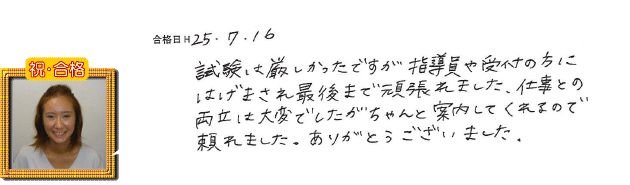 合格日 H25.7.16
祝・合格
試験は厳しかったですが指導員や受付の方に
はげまされ最後まで頑張れました、仕事との
両立は大変でしたがちゃんと案内してくれるので
頼れました。ありがとうございました。